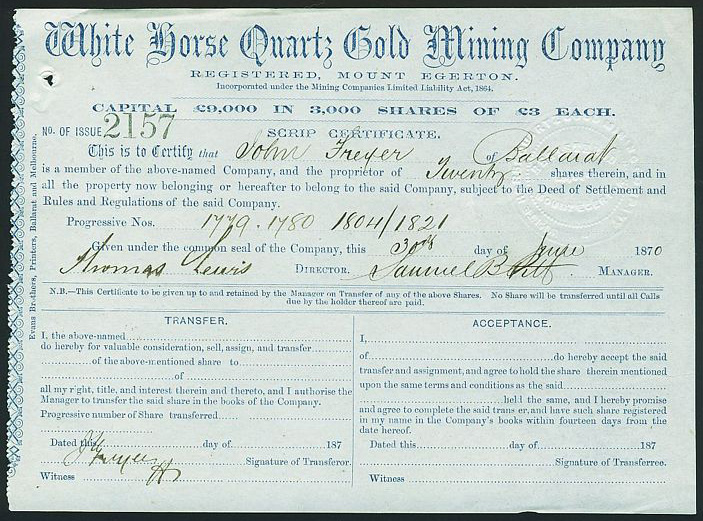 White Horse Quartz Gold Mining Company
REGISTERED, MOUNT EGERTON.
Incorporated under the Mining Companies Limited Liability Act, 1864.
CAPITAL £9,000 IN 3,000 SHARES OF £3 EACH.
NO. OF ISSUE 2157
SCRIP CERTIFICATE.
This is to Certify that John Freyer of Ballarat
is a member of the above-named Company, and the proprietor of Twenty shares therein, and in
all the property now belonging or hereafter to belong to the said Company, subject to the Deed of Settlement and
Rules and Regulations of the said Company.
Progressive Nos. 1779 . 1780 1804/1821
Given under the common seal of the Company, this 23rd day of June 1870
Thomas Lewis DIRECTOR. Samuel MANAGER.
N.B.—This Certificate to be given up to and retained by the Manager on Transfer of any of the above Shares. No Share will be transferred until all Calls
due by the holder thereof are paid.
TRANSFER.
I, the above-named
do hereby for valuable consideration, sell, assign, and transfer
of the above-mentioned share to
of
all my right, title, and interest therein and thereto, and I authorise the
Manager to transfer the said share in the books of the Company.
Progressive number of Share transferred
Dated this day of 187
Freyer
Signature of Transferor.
Witness
ACCEPTANCE.
I,
of do hereby accept the said
transfer and assignment, and agree to hold the share therein mentioned
upon the same terms and conditions as the said
held the same, and I hereby promise
and agree to complete the said trans er, and have such share registered
in my name in the Company's books within fourteen days from the
date hereof.
Dated this day of 187
Signature of Transferree.
Witness
Evans Brothers, Printers, Ballarat and Melbourne.